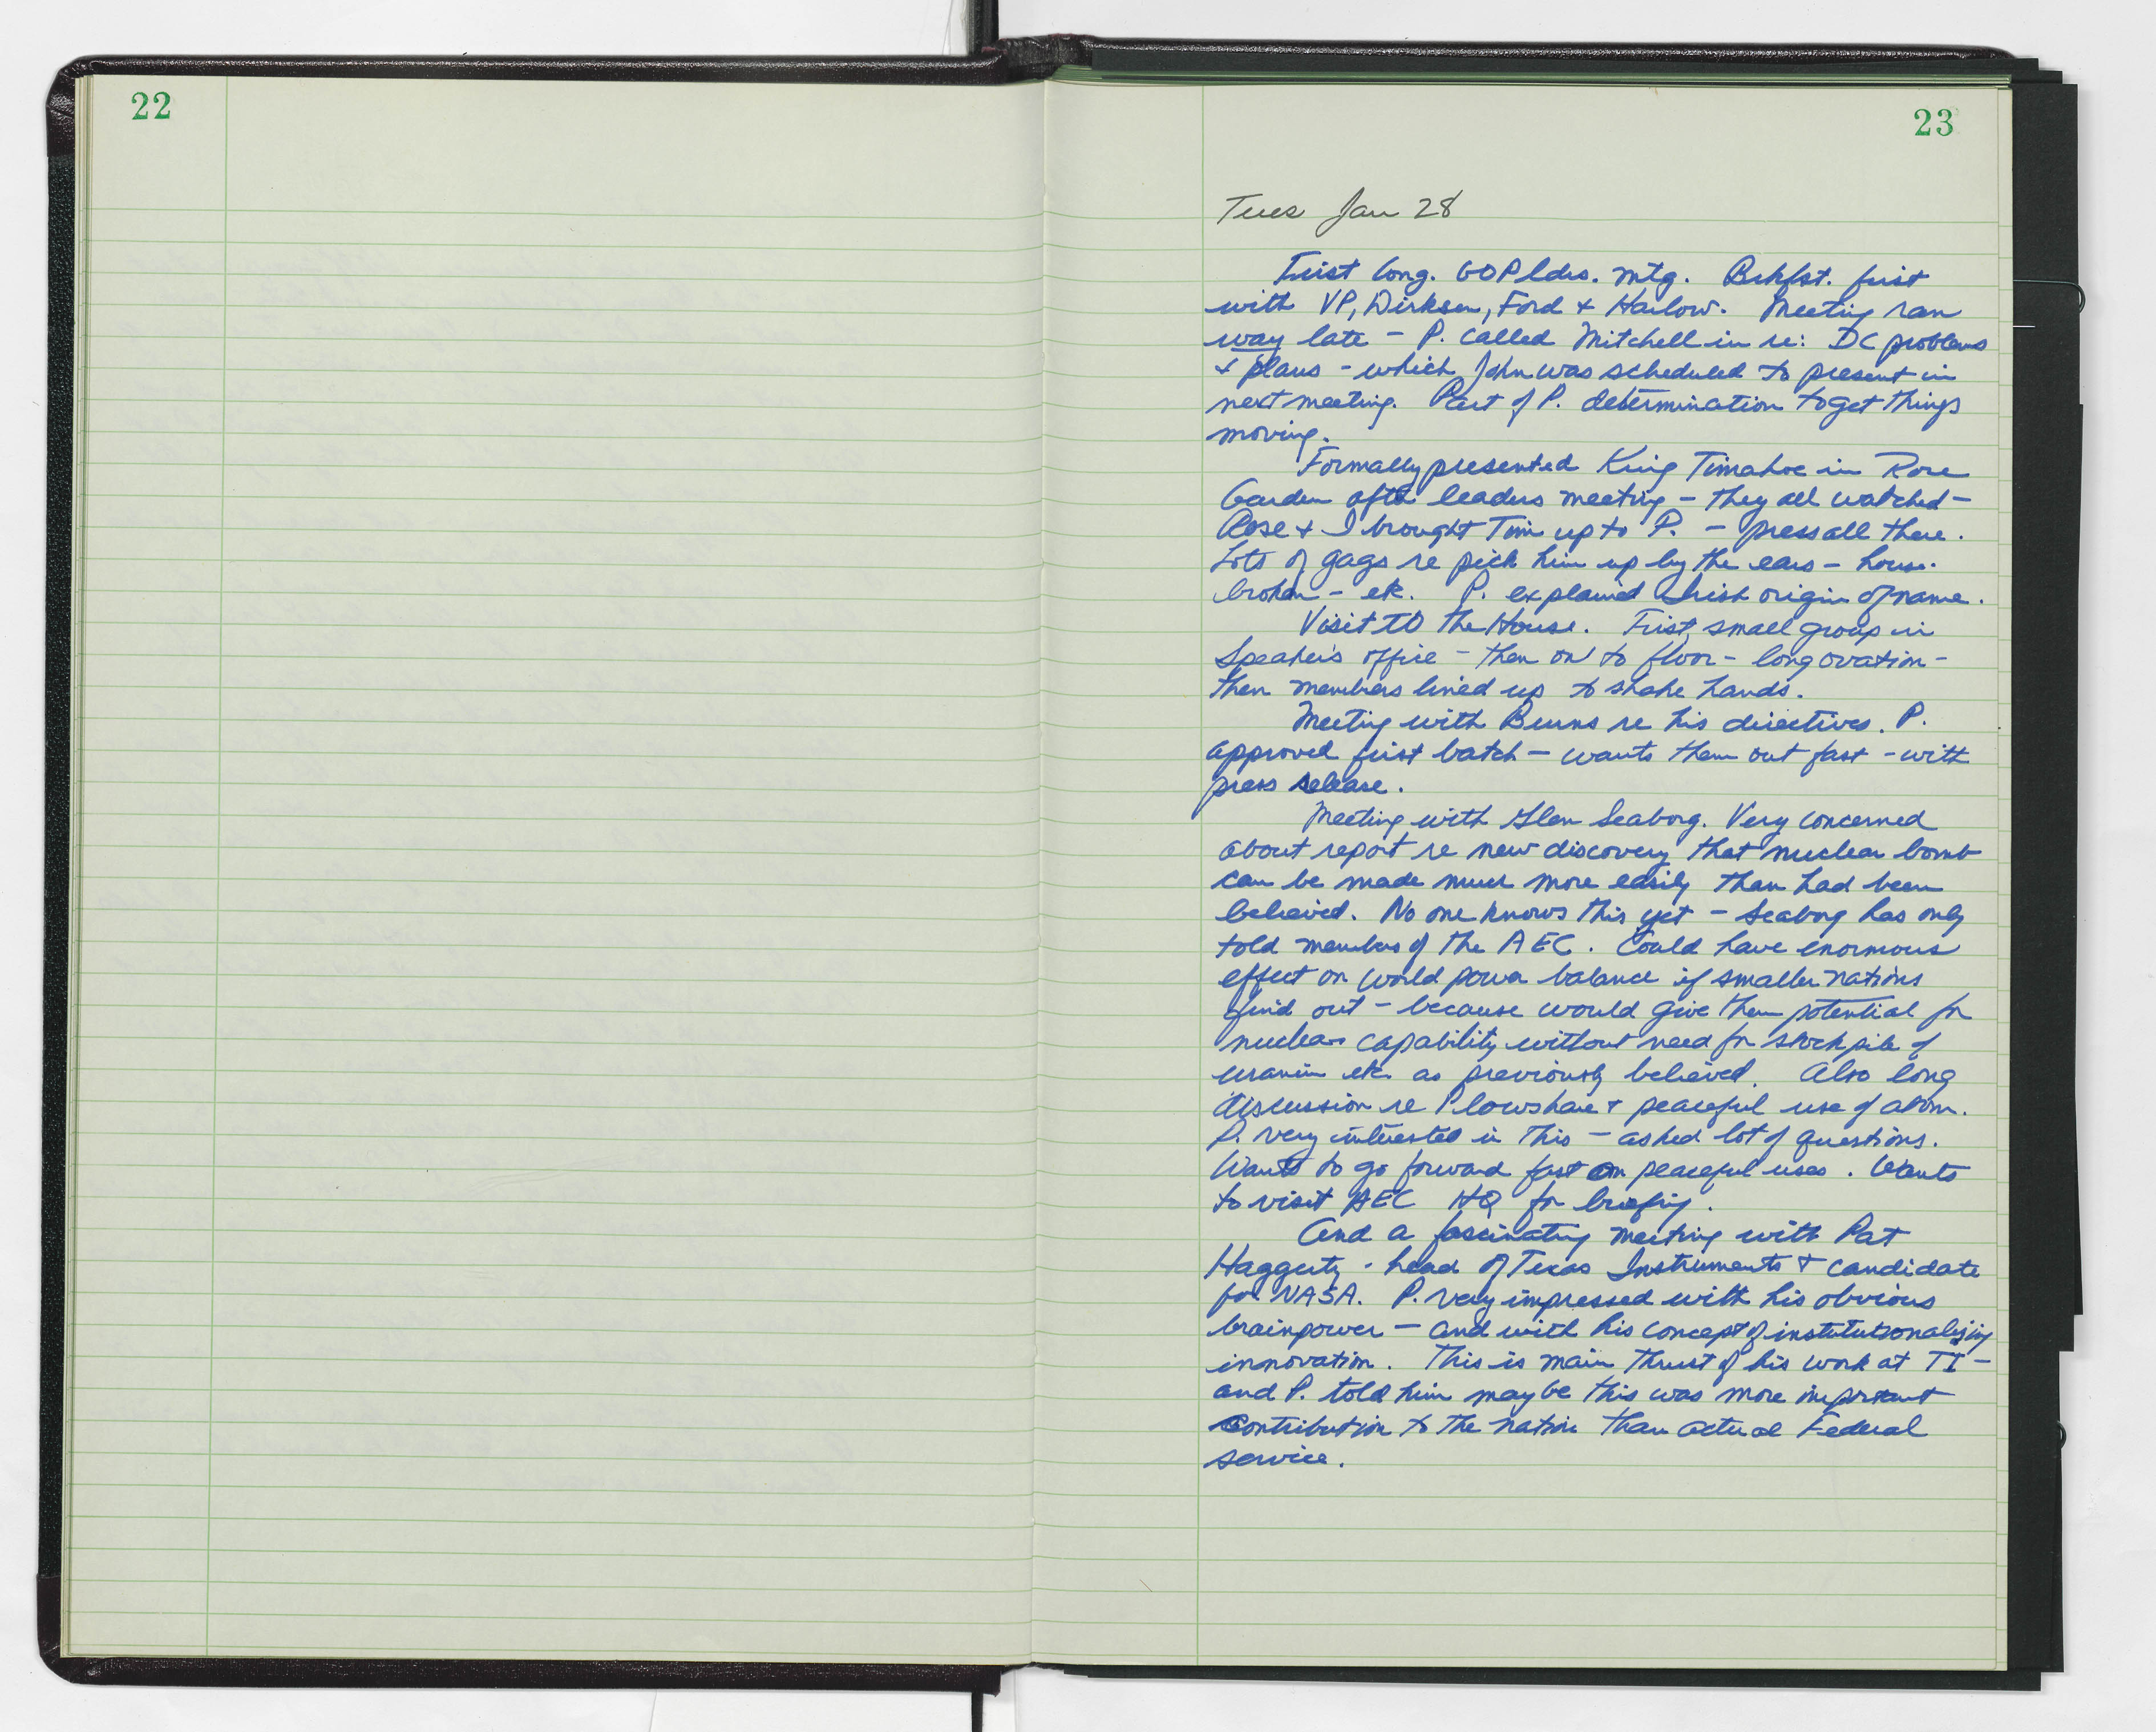 22
23
Tues Jan 28
First Cong. GOP ldrs. mtg. Brkfst. first
with VP, Dirksen, Ford + Harlow. Meeting ran
way late - P. called Mitchell in re: DC problems
+ plans - which John was scheduled to present in
next meeting. Part of P. determination to get things
moving.
Formally presented King Timahoe in Rose
Garden after leaders meeting - they all watched -
Rose + I brought Tim up to P. - press all there.
Lots of gags re pick him up by the ears - house-
broken - etc. P. explained Irish origin of name.
Visit to the House. First, small group in
Speaker's office - then on to floor - long ovation -
then members lined up to shake hands.
Meeting with Burns re his directives. P.
approved first batch - wants them out fast - with
press release.
Meeting with Glen Seaborg. Very concerned
about report re new discovery that nuclear bomb
can be made much more easily than had been
believed. No one knows this yet - Seaborg has only
told members of the AEC. Could have enormous
effect on world power balance if smaller nations
find out - because would give them potential for
nuclear capability without need for stock pile of
uranium etc. as previously believed. Also long
discussion re Plowshare + peaceful use of atom.
P. very interested in this - asked lot of questions.
Wants to go forward fast on peaceful uses. Wants
to visit AEC HQ for briefing.
And a fascinating meeting with Pat
Haggerty - head of Texas Instruments + candidate
for NASA. P. very impressed with his obvious
brainpower - and with his concept of institutionalizing
innovation. This is main thrust of his work at TI -
and P. told him maybe this was more important
contribution to the nation than actual Federal
service.